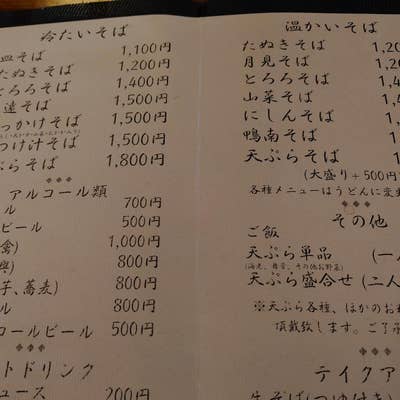 冷たいそば
皿そば 1,100円
たぬきそば 1,200円
とろろそば 1,400円
遠そば 1,500円
っかけそば 1,500円
つけ汁そば 1,500円
ぷらそば 1,800円
アルコール類
ル 700円
ビール 500円
1,000円
800円
芋、蕎麦) 800円
ル 800円
コールビール 500円
トドリンク
ュース 200円
温かいそば
たぬきそば 1,20
月見そば 1,20
とろろそば 1,4
山菜そば 1,4
にしんそば
鴨南そば
天ぷらそば
(大盛り+500円
各種メニューはうどんに変
その他
ご飯
天ぷら単品 (一人
(海老、舞茸、その他お野菜)
天ぷら盛合せ (二人
※天ぷら各種、ほかのお
頂戴致します。ご了承
テイクア
生そば(つゆ付き)